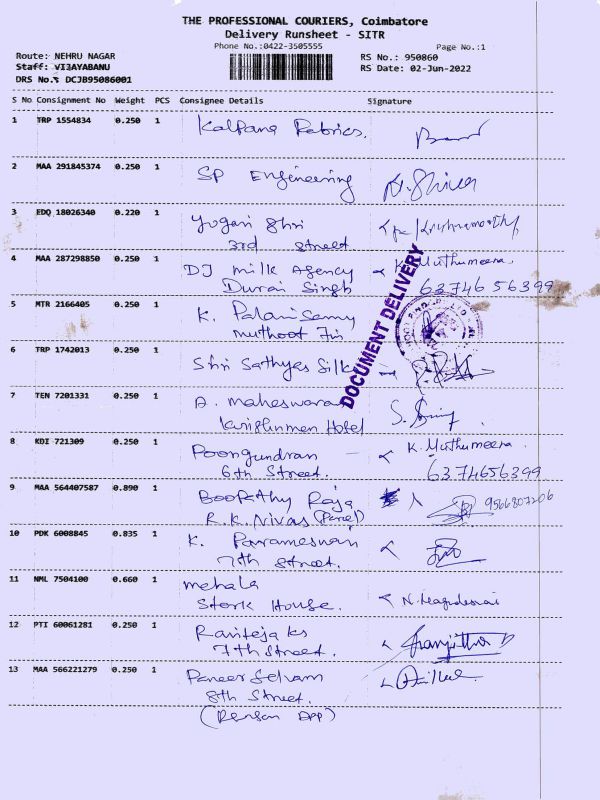 THE PROFESSIONAL COURIERS, Coimbatore
Delivery Runsheet - SITR
Phone No.:0422-3505555 Page No.:1
Route: NEHRU NAGAR RS No.: 950860
Staff: VIJAYABANU RS Date: 02-Jun-2022
DRS No.: DCJB95086001
S No Consignment No Weight PCS Consignee Details Signature
1 TRP 1554834 0.250 1 Kalpana Fabrics.
2 MAA 291845374 0.250 1 SP Engineering
3 EDQ 18026340 0.220 1 Yogari Shri
3rd street
4 MAA 287298850 0.250 1 DJ milk Agency K. Muthumeera
Durai Singh 6374656399
DOCUMENT DELIVERY
5 MTR 2166405 0.250 1 K. Palanisamy
muthoot Fin
6 TRP 1742013 0.250 1 Shri Sathyas Silk
7 TEN 7201331 0.250 1 A. maheswaran
Krishnmen Hotel
8 KDI 721309 0.250 1 Poongundran K. Muthumeera
6th Street. 6374656399
9 MAA 564407587 0.890 1 Boopathy Raja 9566807206
R.K. Nivas (Parcel)
10 PDK 6008845 0.835 1 K. Parameswari
7th street.
11 NML 7504100 0.660 1 mehala
Stork House.
12 PTI 60061281 0.250 1 Raviteja ks
7th Street.
13 MAA 566221279 0.250 1 Paneer Selvam
8th Street.